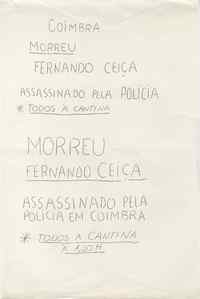 COIMBRA
MORREU
FERNANDO CEIÇA
ASSASSINADO PELA POLÍCIA
* TODOS À CANTINA
MORREU
FERNANDO CEIÇA
ASSASSINADO PELA
POLÍCIA EM COIMBRA
* TODOS À CANTINA